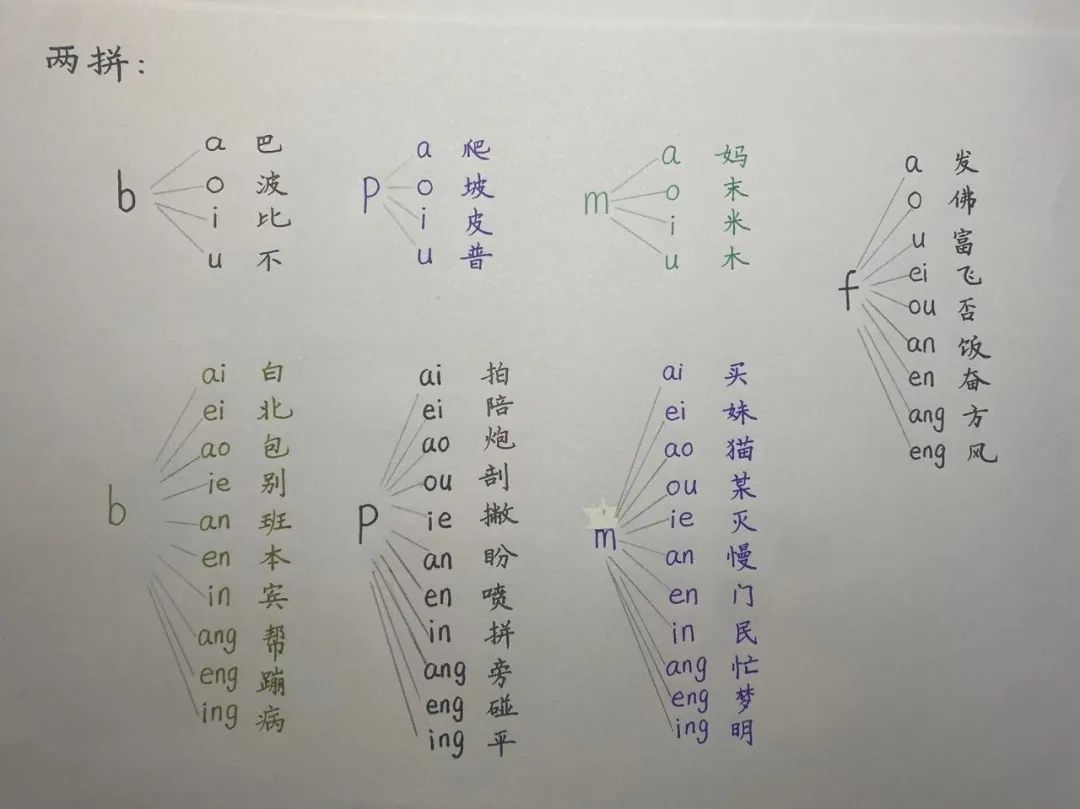 两拼:
b
a 巴
o 波
i 比
u 不
p
a 爬
o 坡
i 皮
u 普
m
a 妈
o 末
i 米
u 木
f
a 发
o 佛
u 富
ei 飞
ou 否
an 饭
en 奋
ang 方
eng 风
b
ai 白
ei 北
ao 包
ie 别
an 班
en 本
in 宾
ang 帮
eng 蹦
ing 病
p
ai 拍
ei 陪
ao 炮
ou 剖
ie 撇
an 盼
en 喷
in 拼
ang 旁
eng 碰
ing 平
m
ai 买
ei 妹
ao 猫
ou 某
ie 灭
an 慢
en 门
in 民
ang 忙
eng 梦
ing 明